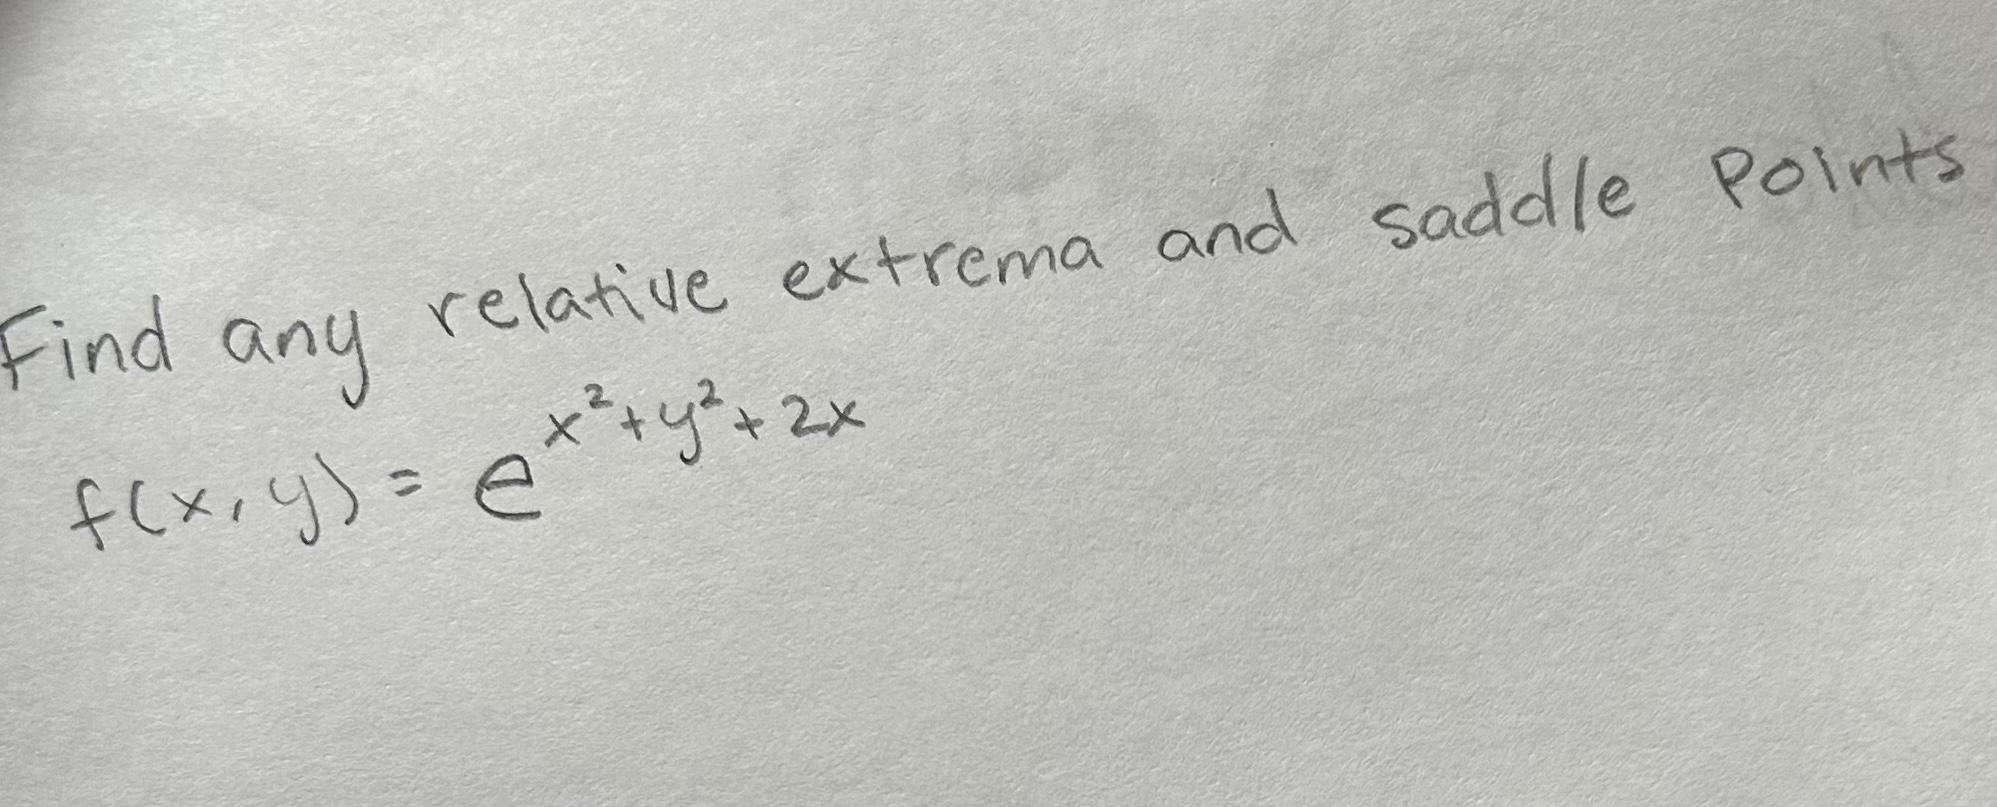 Find any relative extrema and saddle Points
f(x,y) = e^{x²+y²+2x}